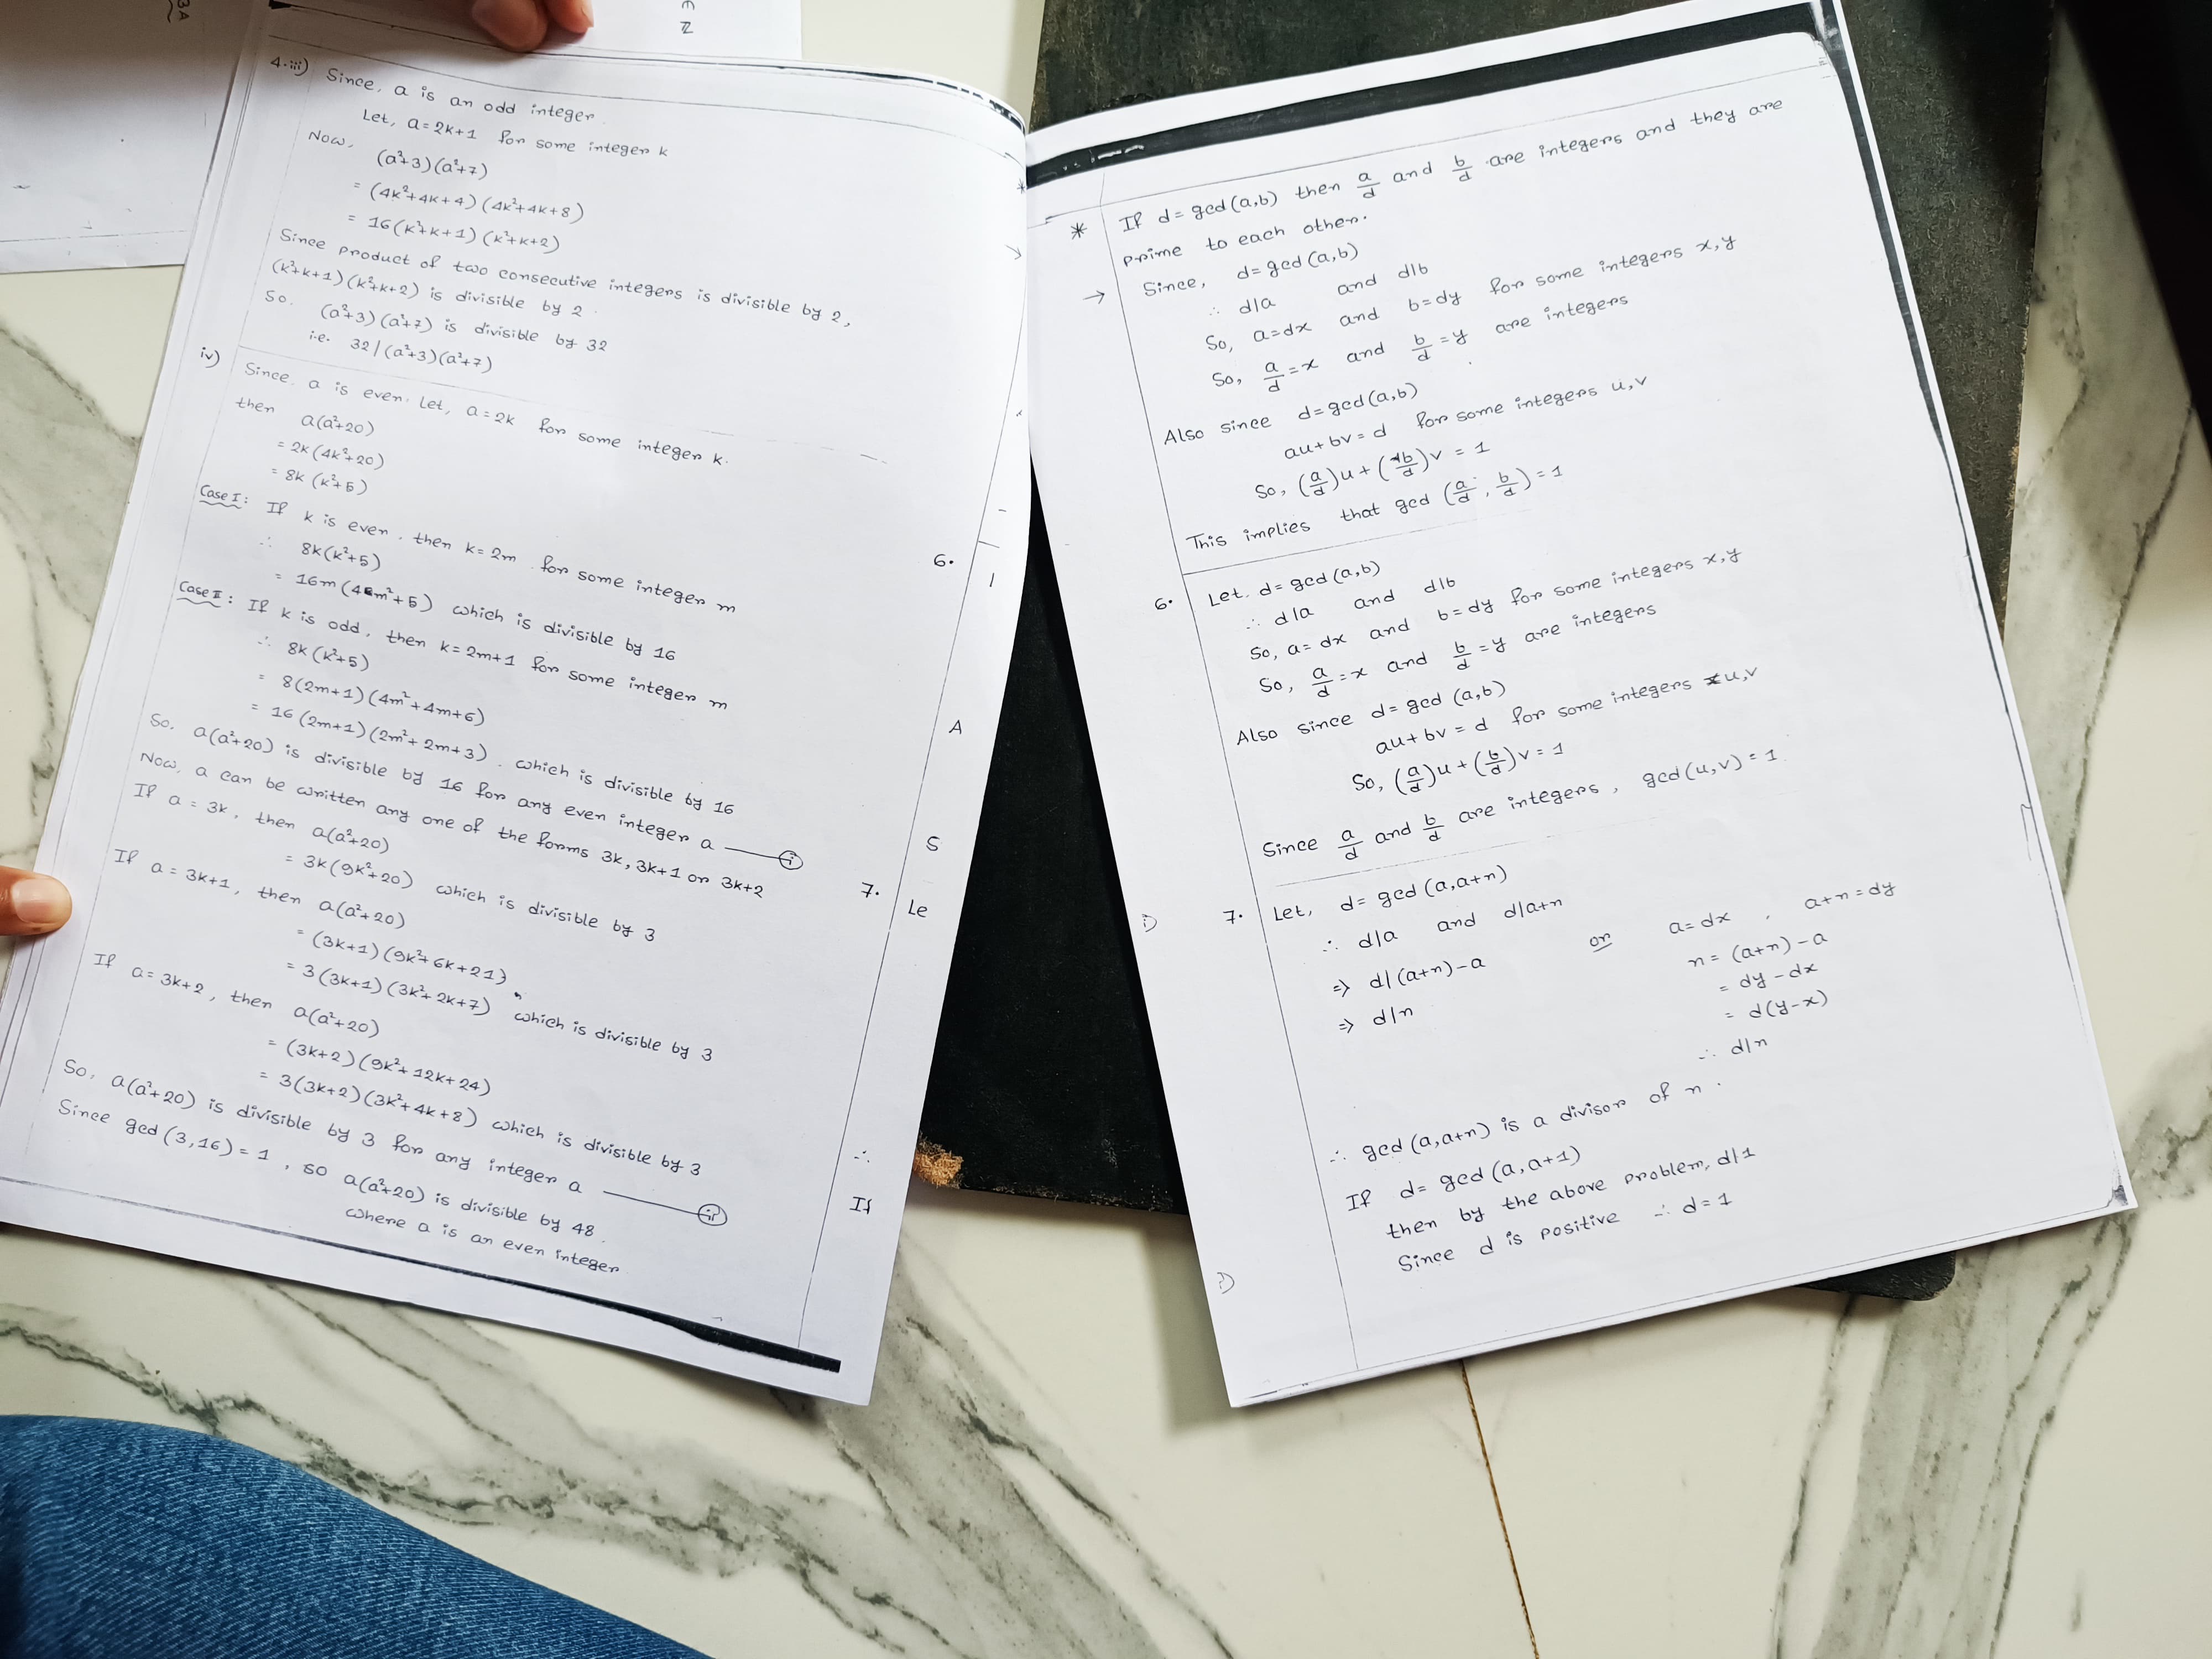 3A
E
Z
4.iii) Since, a is an odd integer.
Let, a=2k+1 for some integer k
Now,
(a²+3)(a²+7)
= (4k²+4k+4)(4k²+4k+8)
= 16(k²+k+1)(k²+k+2)
Since product of two consecutive integers is divisible by 2,
(k²+k+1)(k²+k+2) is divisible by 2.
So, (a²+3)(a²+7) is divisible by 32
i.e. 32|(a²+3)(a²+7)
iv) Since, a is even. Let, a=2k for some integer k.
then a(a²+20)
= 2k(4k²+20)
= 8k(k²+5)
Case I: If k is even, then k=2m for some integer m
∴ 8k(k²+5)
= 16m(4m²+5) which is divisible by 16
Case II: If k is odd, then k=2m+1 for some integer m
∴ 8k(k²+5)
= 8(2m+1)(4m²+4m+6)
= 16(2m+1)(2m²+2m+3). which is divisible by 16
So, a(a²+20) is divisible by 16 for any even integer a — (i)
Now, a can be written any one of the forms 3k, 3k+1 or 3k+2
If a = 3k, then a(a²+20)
= 3k(9k²+20) which is divisible by 3
If a = 3k+1, then a(a²+20)
= (3k+1)(9k²+6k+21)
= 3(3k+1)(3k²+2k+7), which is divisible by 3
If a=3k+2, then a(a²+20)
= (3k+2)(9k²+12k+24)
= 3(3k+2)(3k²+4k+8) which is divisible by 3
So, a(a²+20) is divisible by 3 for any integer a — (ii)
Since gcd(3,16)=1, so a(a²+20) is divisible by 48.
where a is an even integer.
6.
A
S
7. Le
∴
If
* If d=gcd(a,b) then a/d and b/d are integers and they are
prime to each other.
→ Since, d=gcd(a,b)
∴ d|a and d|b
So, a=dx and b=dy for some integers x,y
So, a/d=x and b/d=y are integers
Also since d=gcd(a,b)
au+bv=d for some integers u,v
So, (a/d)u+(b/d)v=1
This implies that gcd(a/d, b/d)=1
6. Let, d=gcd(a,b)
∴ d|a and d|b
So, a=dx and b=dy for some integers x,y
So, a/d=x and b/d=y are integers
Also since d=gcd(a,b)
au+bv=d for some integers u,v
So, (a/d)u+(b/d)v=1
Since a/d and b/d are integers, gcd(u,v)=1.
7. Let, d=gcd(a,a+n)
∴ d|a and d|a+n or a=dx, a+n=dy
⇒ d|(a+n)-a n=(a+n)-a
⇒ d|n = dy-dx
= d(y-x)
∴ d|n
∴ gcd(a,a+n) is a divisor of n.
If d=gcd(a,a+1)
then by the above problem, d|1
Since d is positive ∴ d=1